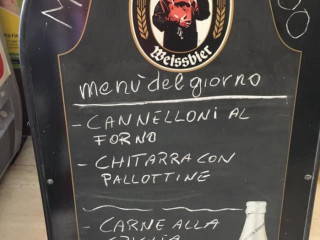 Weissbier
menù del giorno
- CANNELLONI AL
FORNO
- CHITARRA CON
PALLOTTINE
- CARNE ALLA